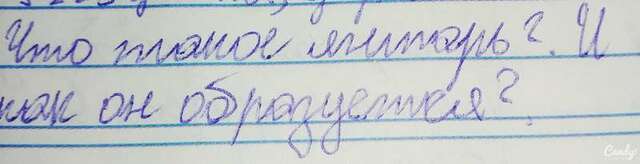 Что такое янтарь?. И
как он образуется?
Candy